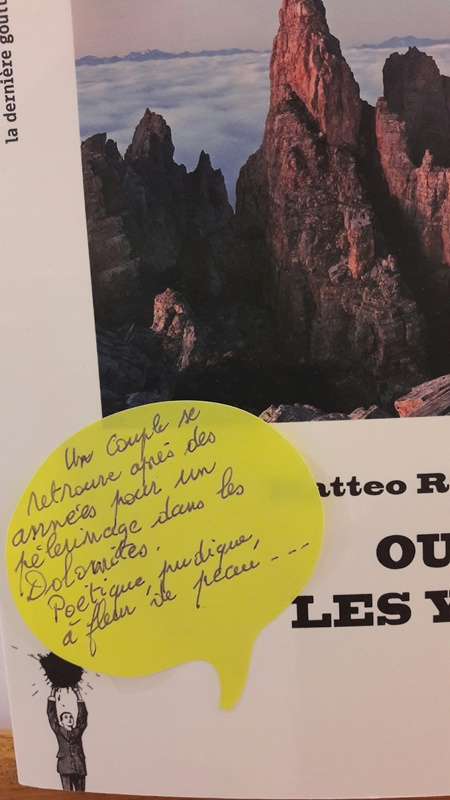 la dernière goutt
Un couple se
retrouve après des
années pour un
pèlerinage dans les
Dolomites.
Poétique, pudique,
à fleur de peau ---
atteo R
OU
LES Y